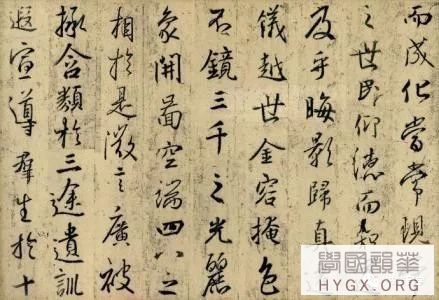 而成化當常現
之世民仰德而知
及乎晦影歸真
儀越世金容掩色
不鏡三千之光麗
象開圖空端四八之
相於是微言廣被
拯含類於三途遺訓
遐宣導羣生於十
華韻國學
HYGX.ORG